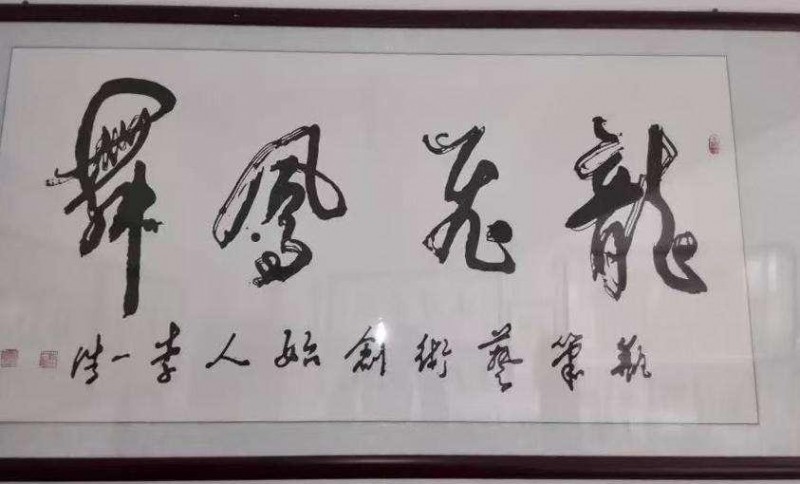 龍飛鳳舞
筆藝術創始人李一